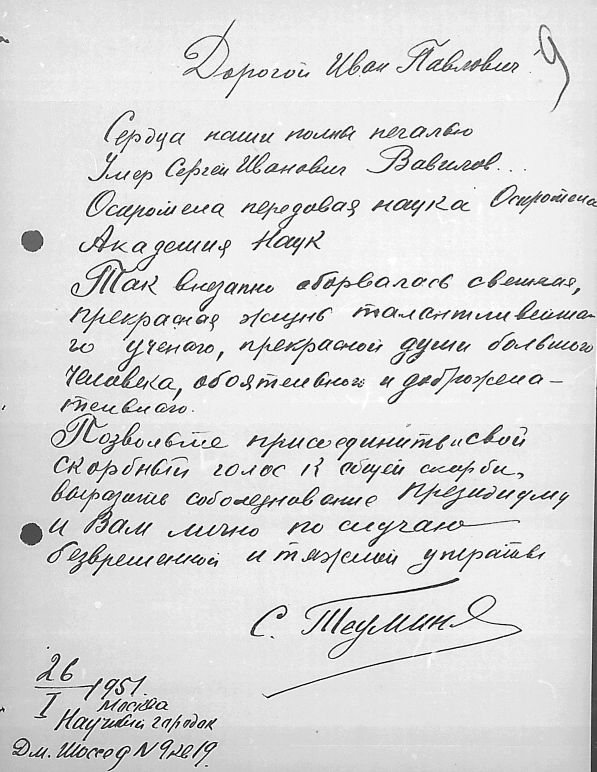 Дорогой Иван Павлович.
9
Сердца наши полны печалью
Умер Сергей Иванович Вавилов...
Осиротела передовая наука Осиротела
Академия Наук
Так внезапно оборвалась светлая,
прекрасная жизнь талантливейше-
го ученого, прекрасной души большого
человека, обоятельного и доброжела-
тельного.
Позвольте присоединить свой
скорбный голос к общей скорби,
выразить соболезнование Президиуму
и Вам лично по случаю
безвременной и тяжелой утраты
С.
26
I 1951.
Москва
Научный городок
Дм. Шоссе